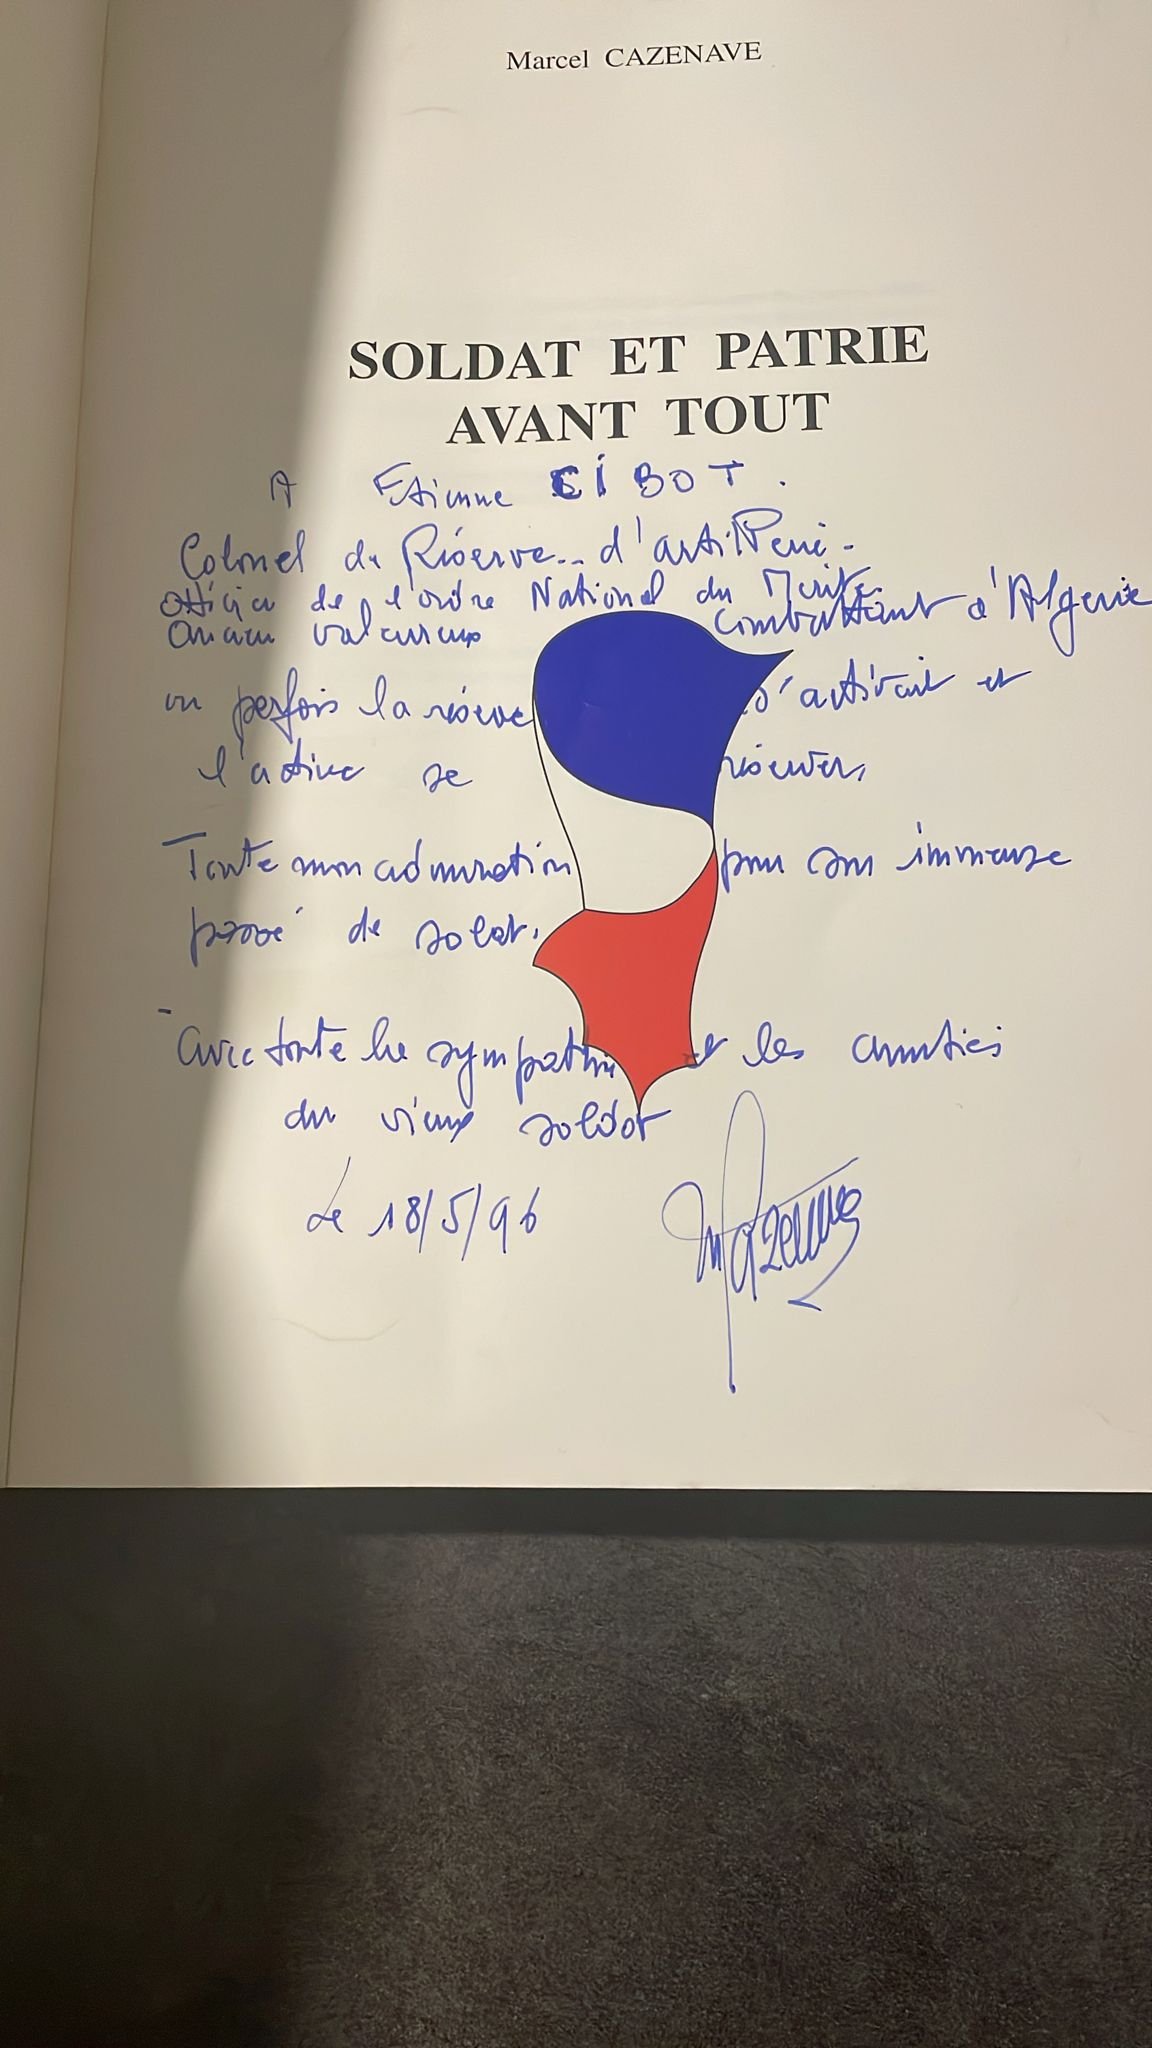 Marcel CAZENAVE
SOLDAT ET PATRIE
AVANT TOUT
A Etienne CIBOT.
Colonel de Réserve.. d'artillerie.
Officier de l'ordre National du Mérite
Ancien valeureux combattant d'Algérie
où parfois la réserve s'activait et
l'active se réserver,
Toute mon admiration pour son immense
passé de soldat.
- Avec toute la sympathie et les amitiés
du vieux soldat
Le 18/5/96
MCazenave